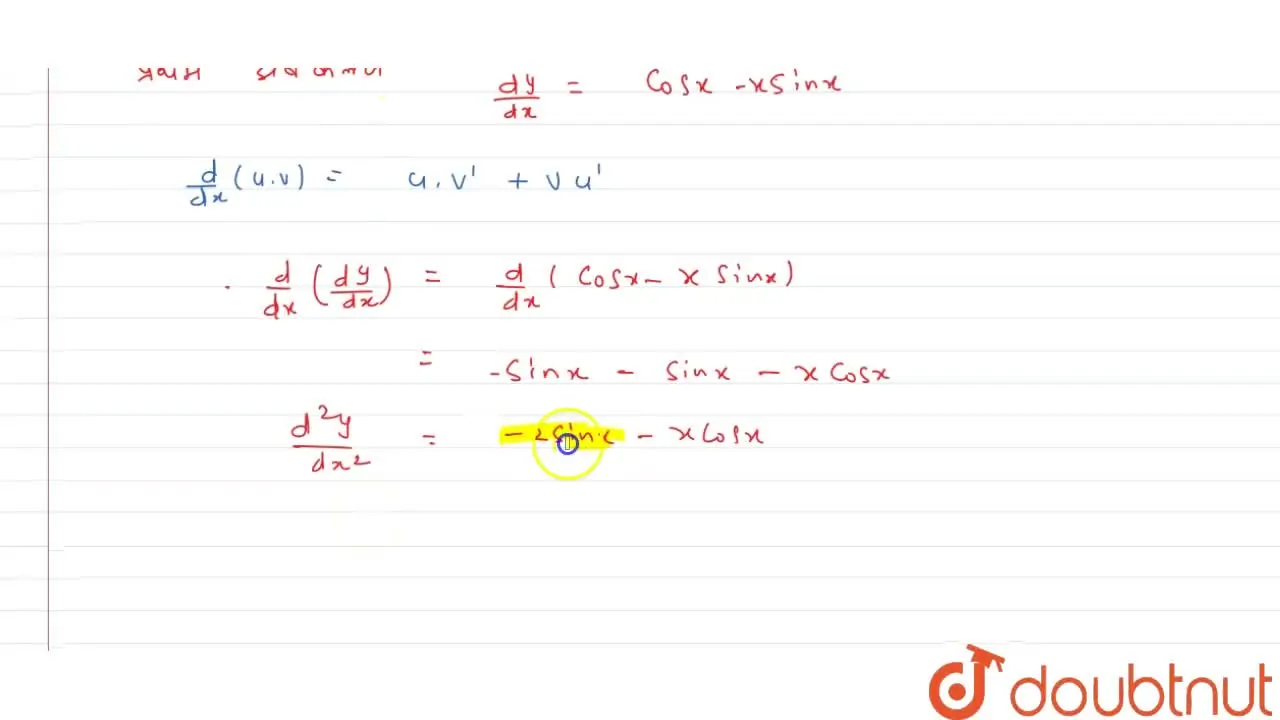 dy/dx = Cosx - xSinx
d/dx (u.v) = u.v' + v u'
. d/dx (dy/dx) = d/dx ( Cosx - x Sinx)
= -Sinx - Sinx - x Cosx
d²y/dx² = - 2Sinx - xCosx
doubtnut